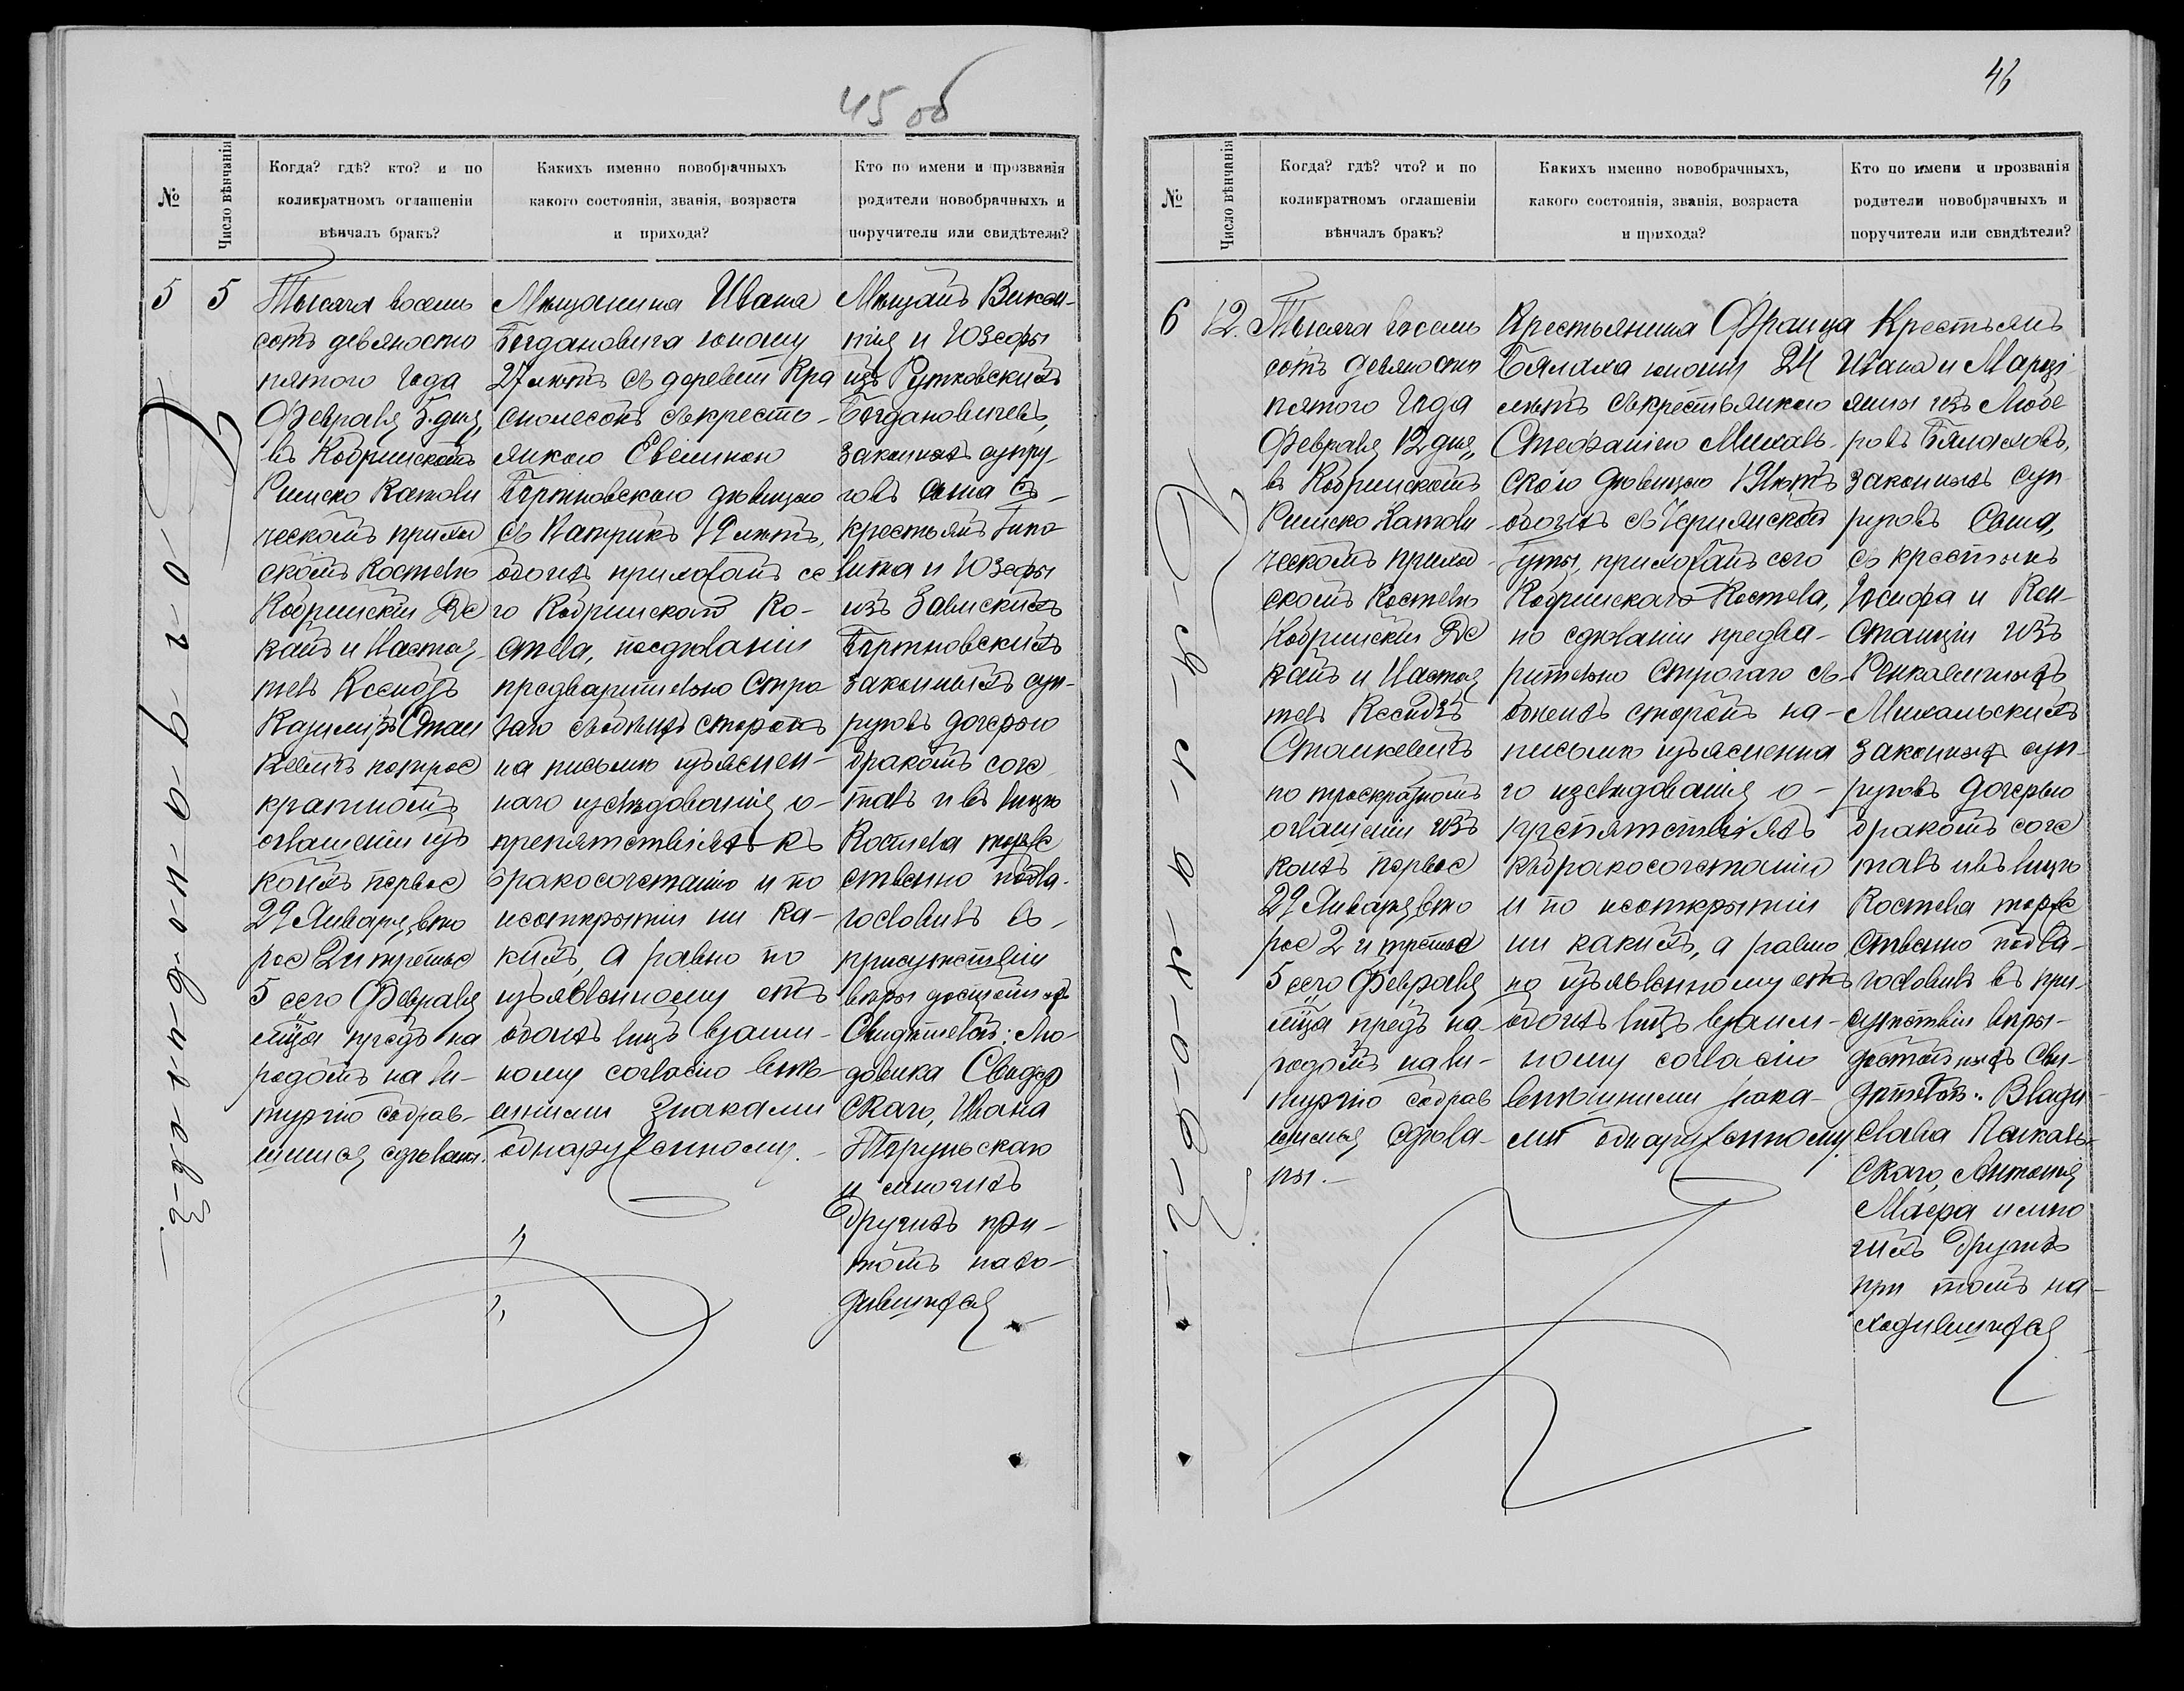 45 об
№
Число вѣнчанія
Когда? гдѣ? кто? и по
коликратномъ оглашеніи
вѣнчалъ бракъ?
Какихъ именно новобрачныхъ
какого состоянія, званія, возраста
и прихода?
Кто по имени и прозванія
родители новобрачныхъ и
поручители или свидѣтели?
5
5
Тысяча восемь
сотъ девяносто
пятого года
Февраля 5. дня,
въ Кобринскомъ
Римско Католи
ческомъ приход
скомъ Костелѣ
Кобринскій Де
канъ и Настоя
тель Ксендзъ
Казиміръ Стан
кевичъ по трое
кратномъ
оглашеніи изъ
коихъ первое
29 Января, вто
рое 2 и третье
5 сего Февраля
м̃ца предъ на
родомъ на ли-
тургію собрав-
шимся сдѣланы.
Мѣщанина Ивана
Богдановича юношу
27 лѣтъ съ деревни Кра
снолесокъ съ кресто-
янкою
Бортновскою дѣвицею
съ Патрикъ 19 лѣтъ,
обоихъ прихожанъ се
го Кобринскаго Ко-
стела, по сдѣланіи
предварительно Стро
гаго съ обѣихъ сторонъ
на письмѣ изъяснен-
наго изслѣдованія о-
препятствіяхъ къ
бракосочетанію и по
неоткрытіи ни ка-
кихъ, а равно по
изъявленному отъ
обоихъ лицъ взаим-
ному согласію внѣ-
шними знаками
обнаруженному.
Мѣщанъ Викен-
тія и Юзефы
изъ Рутковскихъ
Богдановичевъ,
законныхъ супру
говъ сына съ
крестьянъ Ипо
лита и Юзефы
изъ Завискихъ
Бортновскихъ
законныхъ суп-
руговъ дочерью
бракомъ соче
талъ и въ лицѣ
Костела торже
ственно побла-
гословилъ въ
присутствіи
вѣры достойныхъ
Свидѣтелей: Лю-
довика Свидер
скаго, Ивана
и многихъ
другихъ при
томъ нахо-
дившихся
Богданович
46
№
Число вѣнчанія
Когда? гдѣ? что? и по
коликратномъ оглашеніи
вѣнчалъ бракъ?
Какихъ именно новобрачныхъ,
какого состоянія, званія, возраста
и прихода?
Кто по имени и прозванія
родители новобрачныхъ и
поручители или свидѣтели?
6
12.
Тысяча восемь
сотъ девяносто
пятого года
Февраля 12 дня,
въ Кобринскомъ
Римско Католи
ческомъ приход
скомъ Костелѣ
Кобринскій Де
канъ и Настоя
тель Ксендзъ
Станкевичъ
по троекратномъ
оглашеніи изъ
коихъ первое
29 Января, вто
рое 2 и третье
5 сего Февраля
м̃ца предъ на-
родомъ на ли-
тургію собрав
шимся сдѣла-
ны.
Крестьянина Франца
Бялаха юношу 24
лѣтъ съ крестьянкою
Стефаніею Михаль-
скою дѣвицею 19 лѣтъ
обоихъ съ Чернянской
Гуты, прихожанъ сего
Кобринскаго Костела,
по сдѣланіи предва-
рительно Строгаго съ
обѣихъ сторонъ на-
письмѣ изъясненна
го изслѣдованія о-
препятствіяхъ
къ бракосочетанію
и по неоткрытіи
ни какихъ, а равно
по изъявленному отъ
обоихъ лицъ взаим-
ному согласію
внѣшними знака-
ми обнаруженному.
Крестьянъ
Ивана и Марці
яны изъ Любе
ровъ Бялаховъ,
законныхъ суп
руговъ сына,
съ крестьянъ
Іосифа и Кон-
станціи изъ
Михальскихъ
законныхъ суп
руговъ дочерью
бракомъ соче
талъ и въ лицѣ
Костела торже
ственно побла-
гословилъ въ при-
сутствіи вѣры-
достойныхъ Сви-
дѣтелей: Влади
слава
скаго, Антонія
Маера и мно
гихъ другихъ
при томъ на-
ходившихся